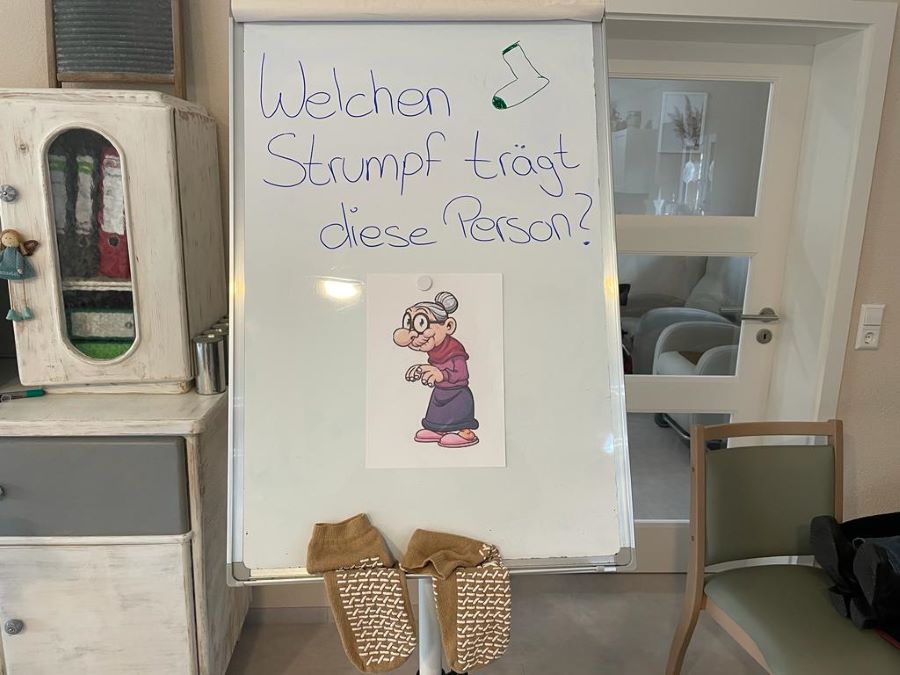 Welchen
Strumpf trägt
diese Person?